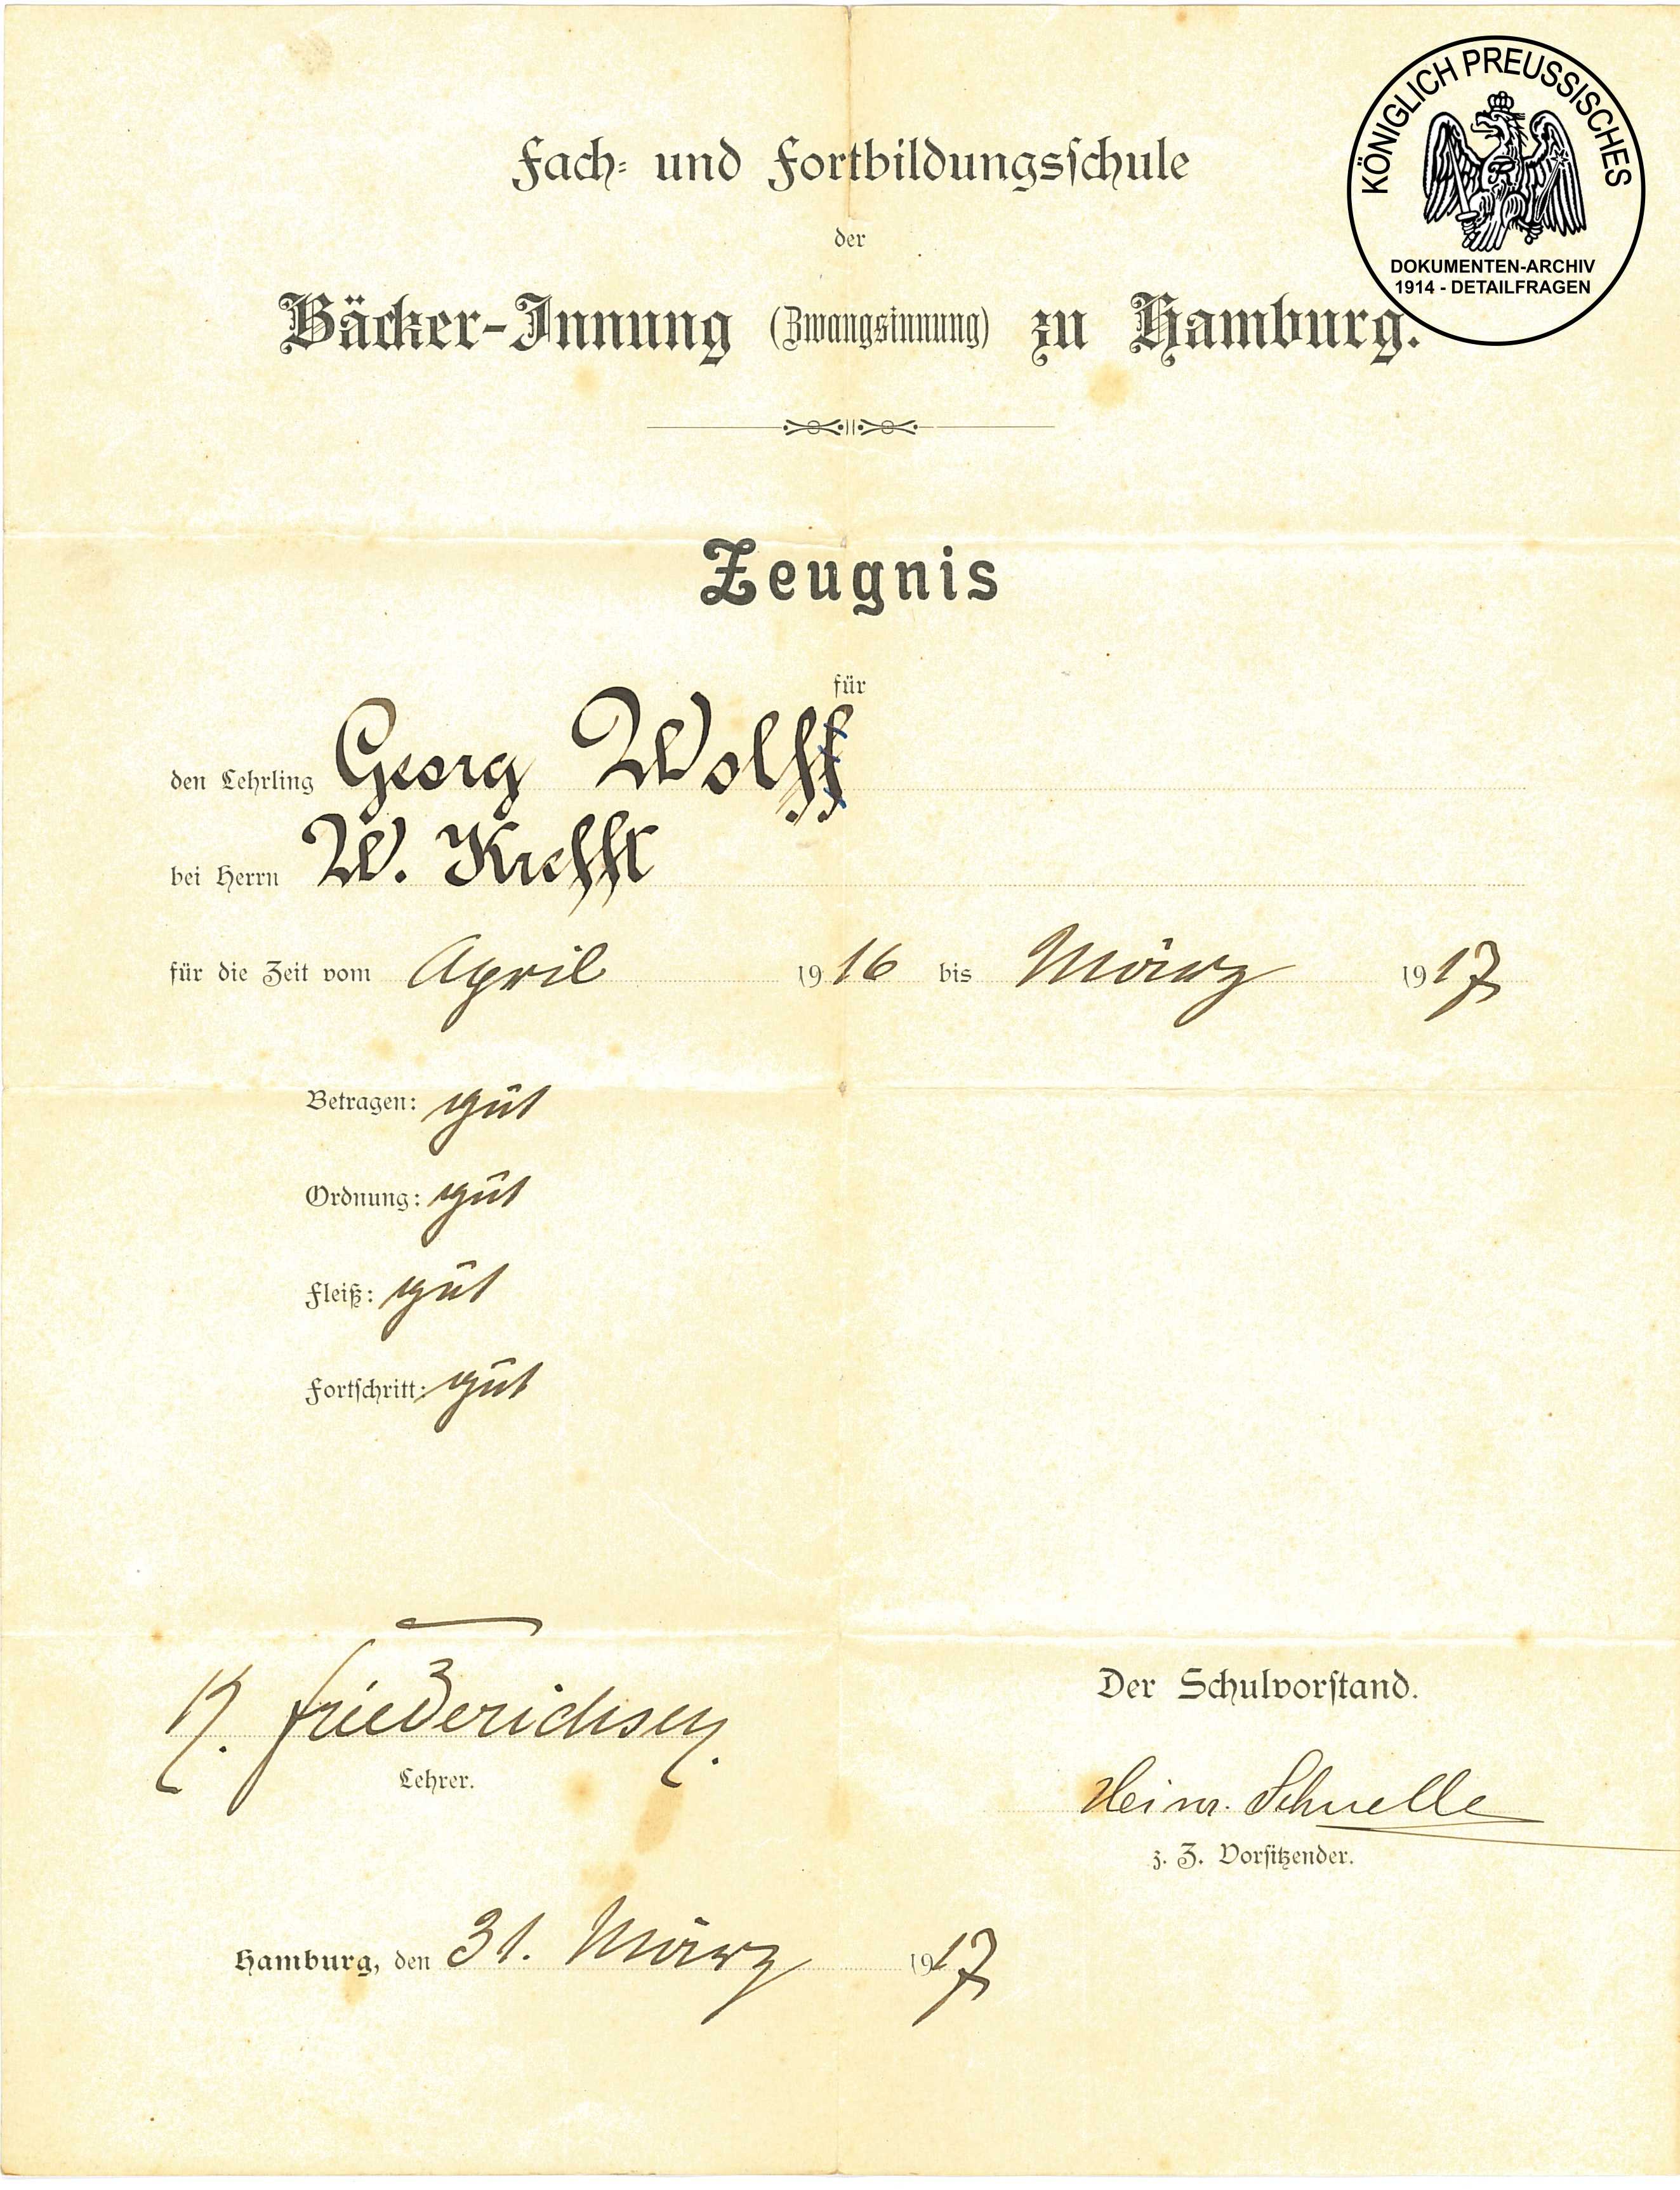 KÖNIGLICH PREUSSISCHES
DOKUMENTEN-ARCHIV
1914 - DETAILFRAGEN
Fach- und Fortbildungsschule
der
Bäcker-Innung (Zwangsinnung) zu Hamburg.
Zeugnis
für
den Lehrling Georg Wolff
bei Herrn W. Krefft
für die Zeit vom April 1916 bis März 1917
Betragen: gut
Ordnung: gut
Fleiß: gut
Fortschritt: gut
Friederichsen.
Lehrer.
Der Schulvorstand.
Heinr. Schnelle
z. Z. Vorsitzender.
Hamburg, den 31. März 1917